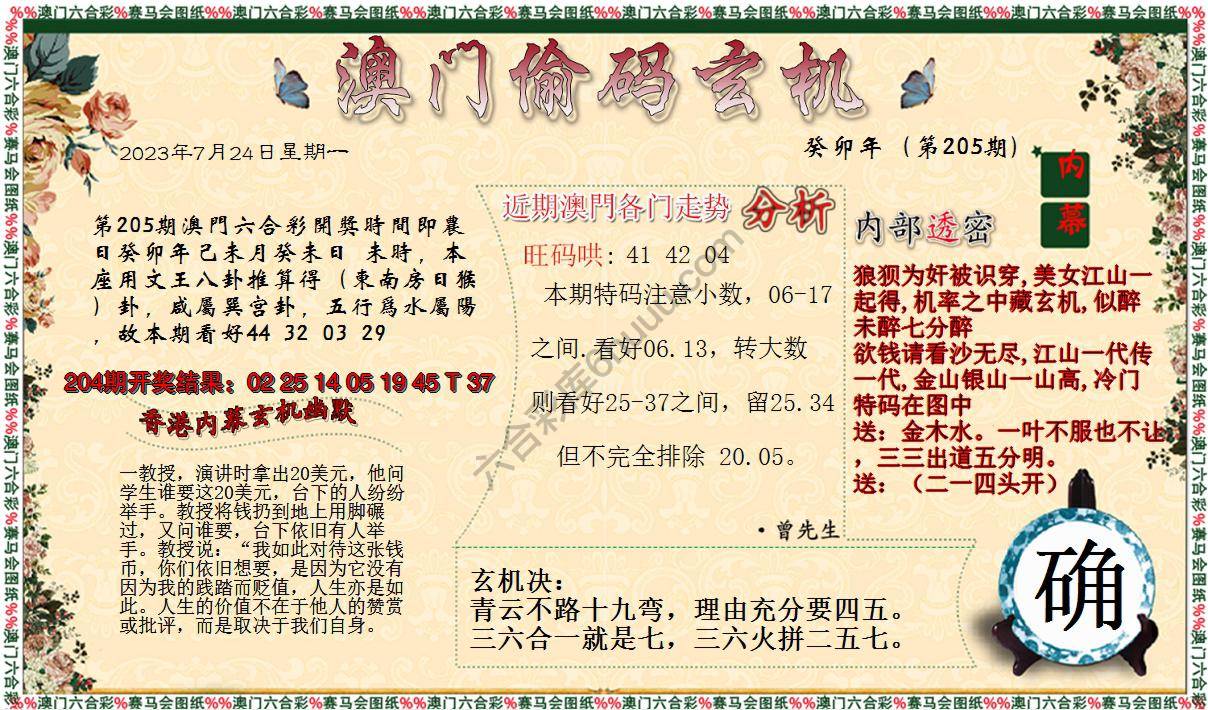 %%澳门六合彩%赛马会图纸%%澳门六合彩%赛马会图纸%%澳门六合彩%赛马会图纸%%澳门六合彩%赛马会图纸%%澳门六合彩%赛马会图纸%%澳门六合彩%赛马会图纸
澳门偷码玄机
2023年7月24日星期一
癸卯年（第205期）
内幕
第205期澳門六合彩開獎時間即農
日癸卯年己未月癸未日 未時，本
座用文王八卦推算得（東南房日猴
）卦，咸屬巽宫卦，五行爲水屬陽
，故本期看好44 32 03 29
204期开奖结果：02 25 14 05 19 45 T 37
香港内幕玄机幽默
一教授，演讲时拿出20美元，他问
学生谁要这20美元，台下的人纷纷
举手。教授将钱扔到地上用脚碾
过，又问谁要，台下依旧有人举
手。教授说：“我如此对待这张钱
币，你们依旧想要，是因为它没有
因为我的践踏而贬值，人生亦是如
此。人生的价值不在于他人的赞赏
或批评，而是取决于我们自身。
近期澳門各门走势 分析
旺码哄: 41 42 04
本期特码注意小数，06-17
之间.看好06.13，转大数
则看好25-37之间，留25.34
但不完全排除 20.05。
·曾先生
内部透密
狼狈为奸被识穿,美女江山一
起得,机率之中藏玄机,似醉
未醉七分醉
欲钱请看沙无尽,江山一代传
一代,金山银山一山高,冷门
特码在图中
送：金木水。一叶不服也不让
，三三出道五分明。
送：（二一四头开）
玄机决：
青云不路十九弯，理由充分要四五。
三六合一就是七，三六火拼二五七。
确
六合彩库61uuu.com